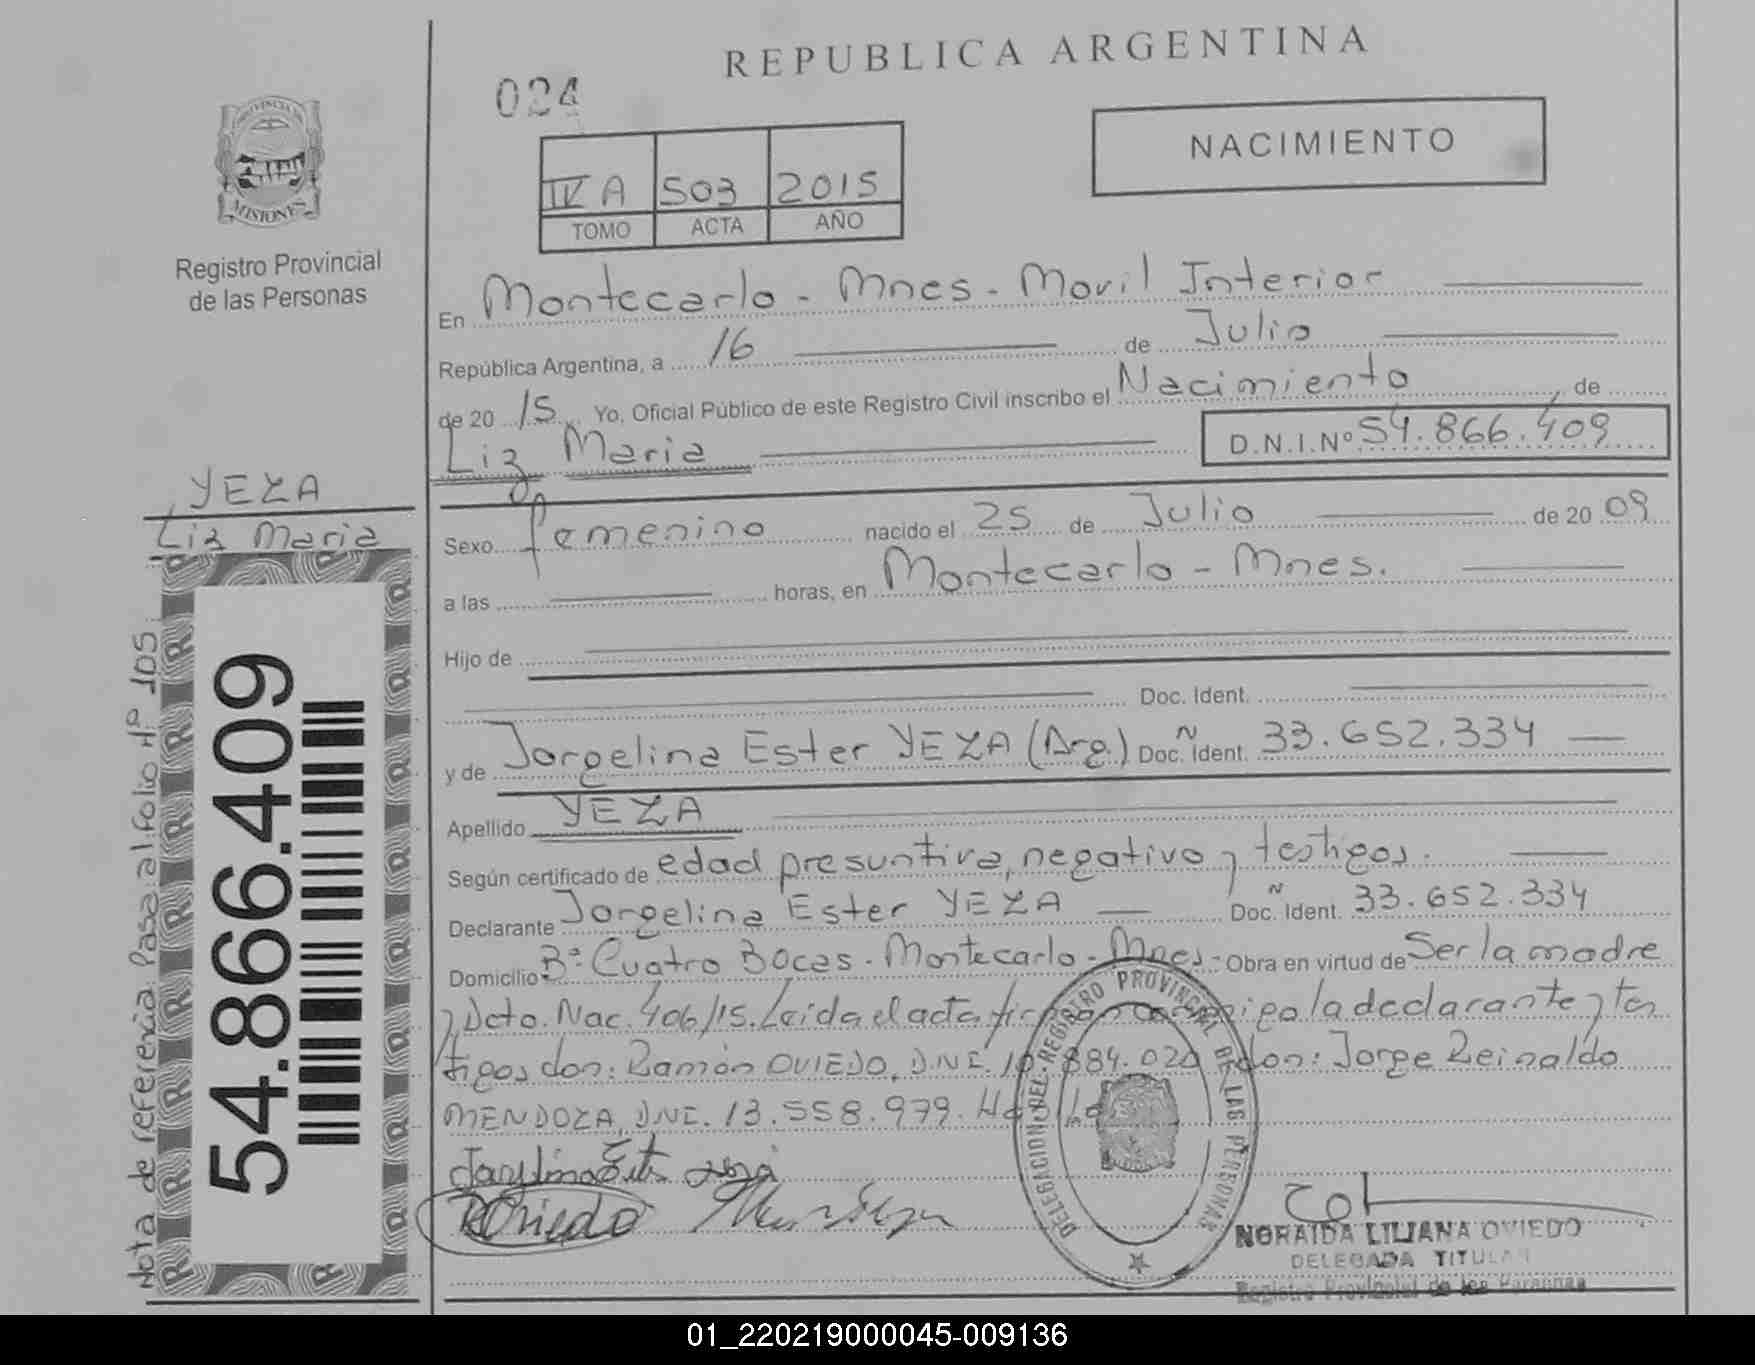 REPUBLICA ARGENTINA
024
NACIMIENTO
PROVINCIA DE
MISIONES
IV A 503 2015
TOMO ACTA AÑO
Registro Provincial
de las Personas
En Montecarlo - Mnes - Movil Interior
República Argentina, a 16 de Julio
de 20 15 Yo, Oficial Público de este Registro Civil inscribo el Nacimiento, de
Liz Maria D.N.I.Nº 54.866.409
YEZA
Liz Maria
Sexo femenino nacido el 25 de Julio de 20 09
a las horas, en Montecarlo - Mnes.
Hijo de
Doc. Ident.
y de Jorgelina Ester YEZA (Arg.) Doc. Ident. 33.652.334
Apellido YEZA
Según certificado de edad presuntiva, negativo y testigos.
Declarante Jorgelina Ester YEZA Doc. Ident. 33.652.334
Domicilio Bº Cuatro Bocas - Montecarlo - Mnes - Obra en virtud de Ser la madre
y Dcto. Nac. 406/15. Leida el acta la declarante y tes
tigos don: Ramón OVIEDO, DNI. don: Jorge Reinaldo
MENDOZA, DNI. 13.558.979.
Nota de referencia Pasa al folio Nº 105.
54.866.409
DELEGACION DEL REGISTRO PROVINCIAL DE LAS PERSONAS
ROviedo
NORAIDA LILIANA OVIEDO
DELEGADA TITULAR
Registro Provincial de las Personas
01_220219000045-009136